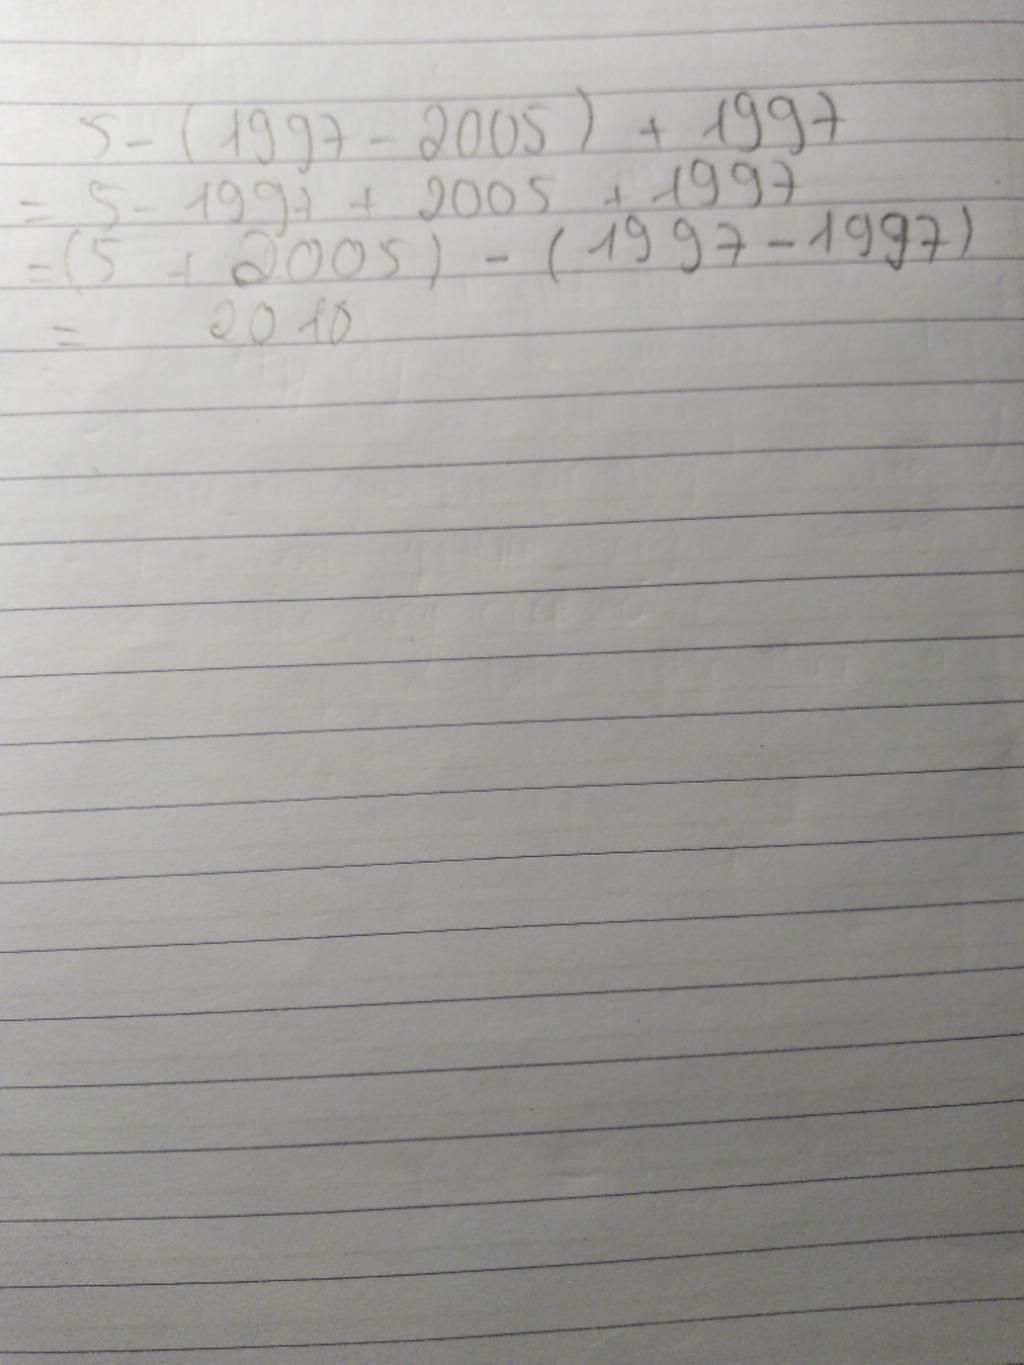 5 - (1997 - 2005) + 1997
= 5 - 1997 + 2005 + 1997
= (5 + 2005) - (1997 - 1997)
= 2010